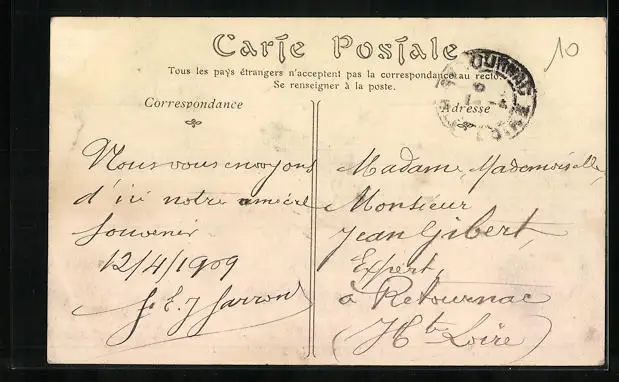 Carte Postale
Tous les pays étrangers n'acceptent pas la correspondance au recto.
Se renseigner à la poste.
Correspondance
Adresse
RETOURNAC
10
Nous vous envoyons
d'ici notre
souvenir
12/4/1909
Madame, Mademoiselle,
Monsieur
Jean Gibert,
Expert,
à Retournac
(Hte Loire)